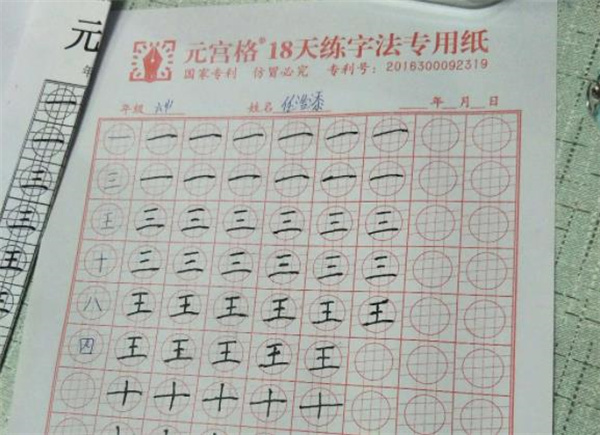 元宫格®18天练字法专用纸
国家专利 仿冒必究 专利号：2016300092319
年级 姓名 年 月 日
一 一 一 一 一 一 一
三 一 一 一 一 一 一
王 三 三 三 三 三 三
十 三 三 三 三 三 三
八 王 王 王 王 王 王
四 王 王 王 王 王
十 十 十 十 十
元
一
一
三
三
王